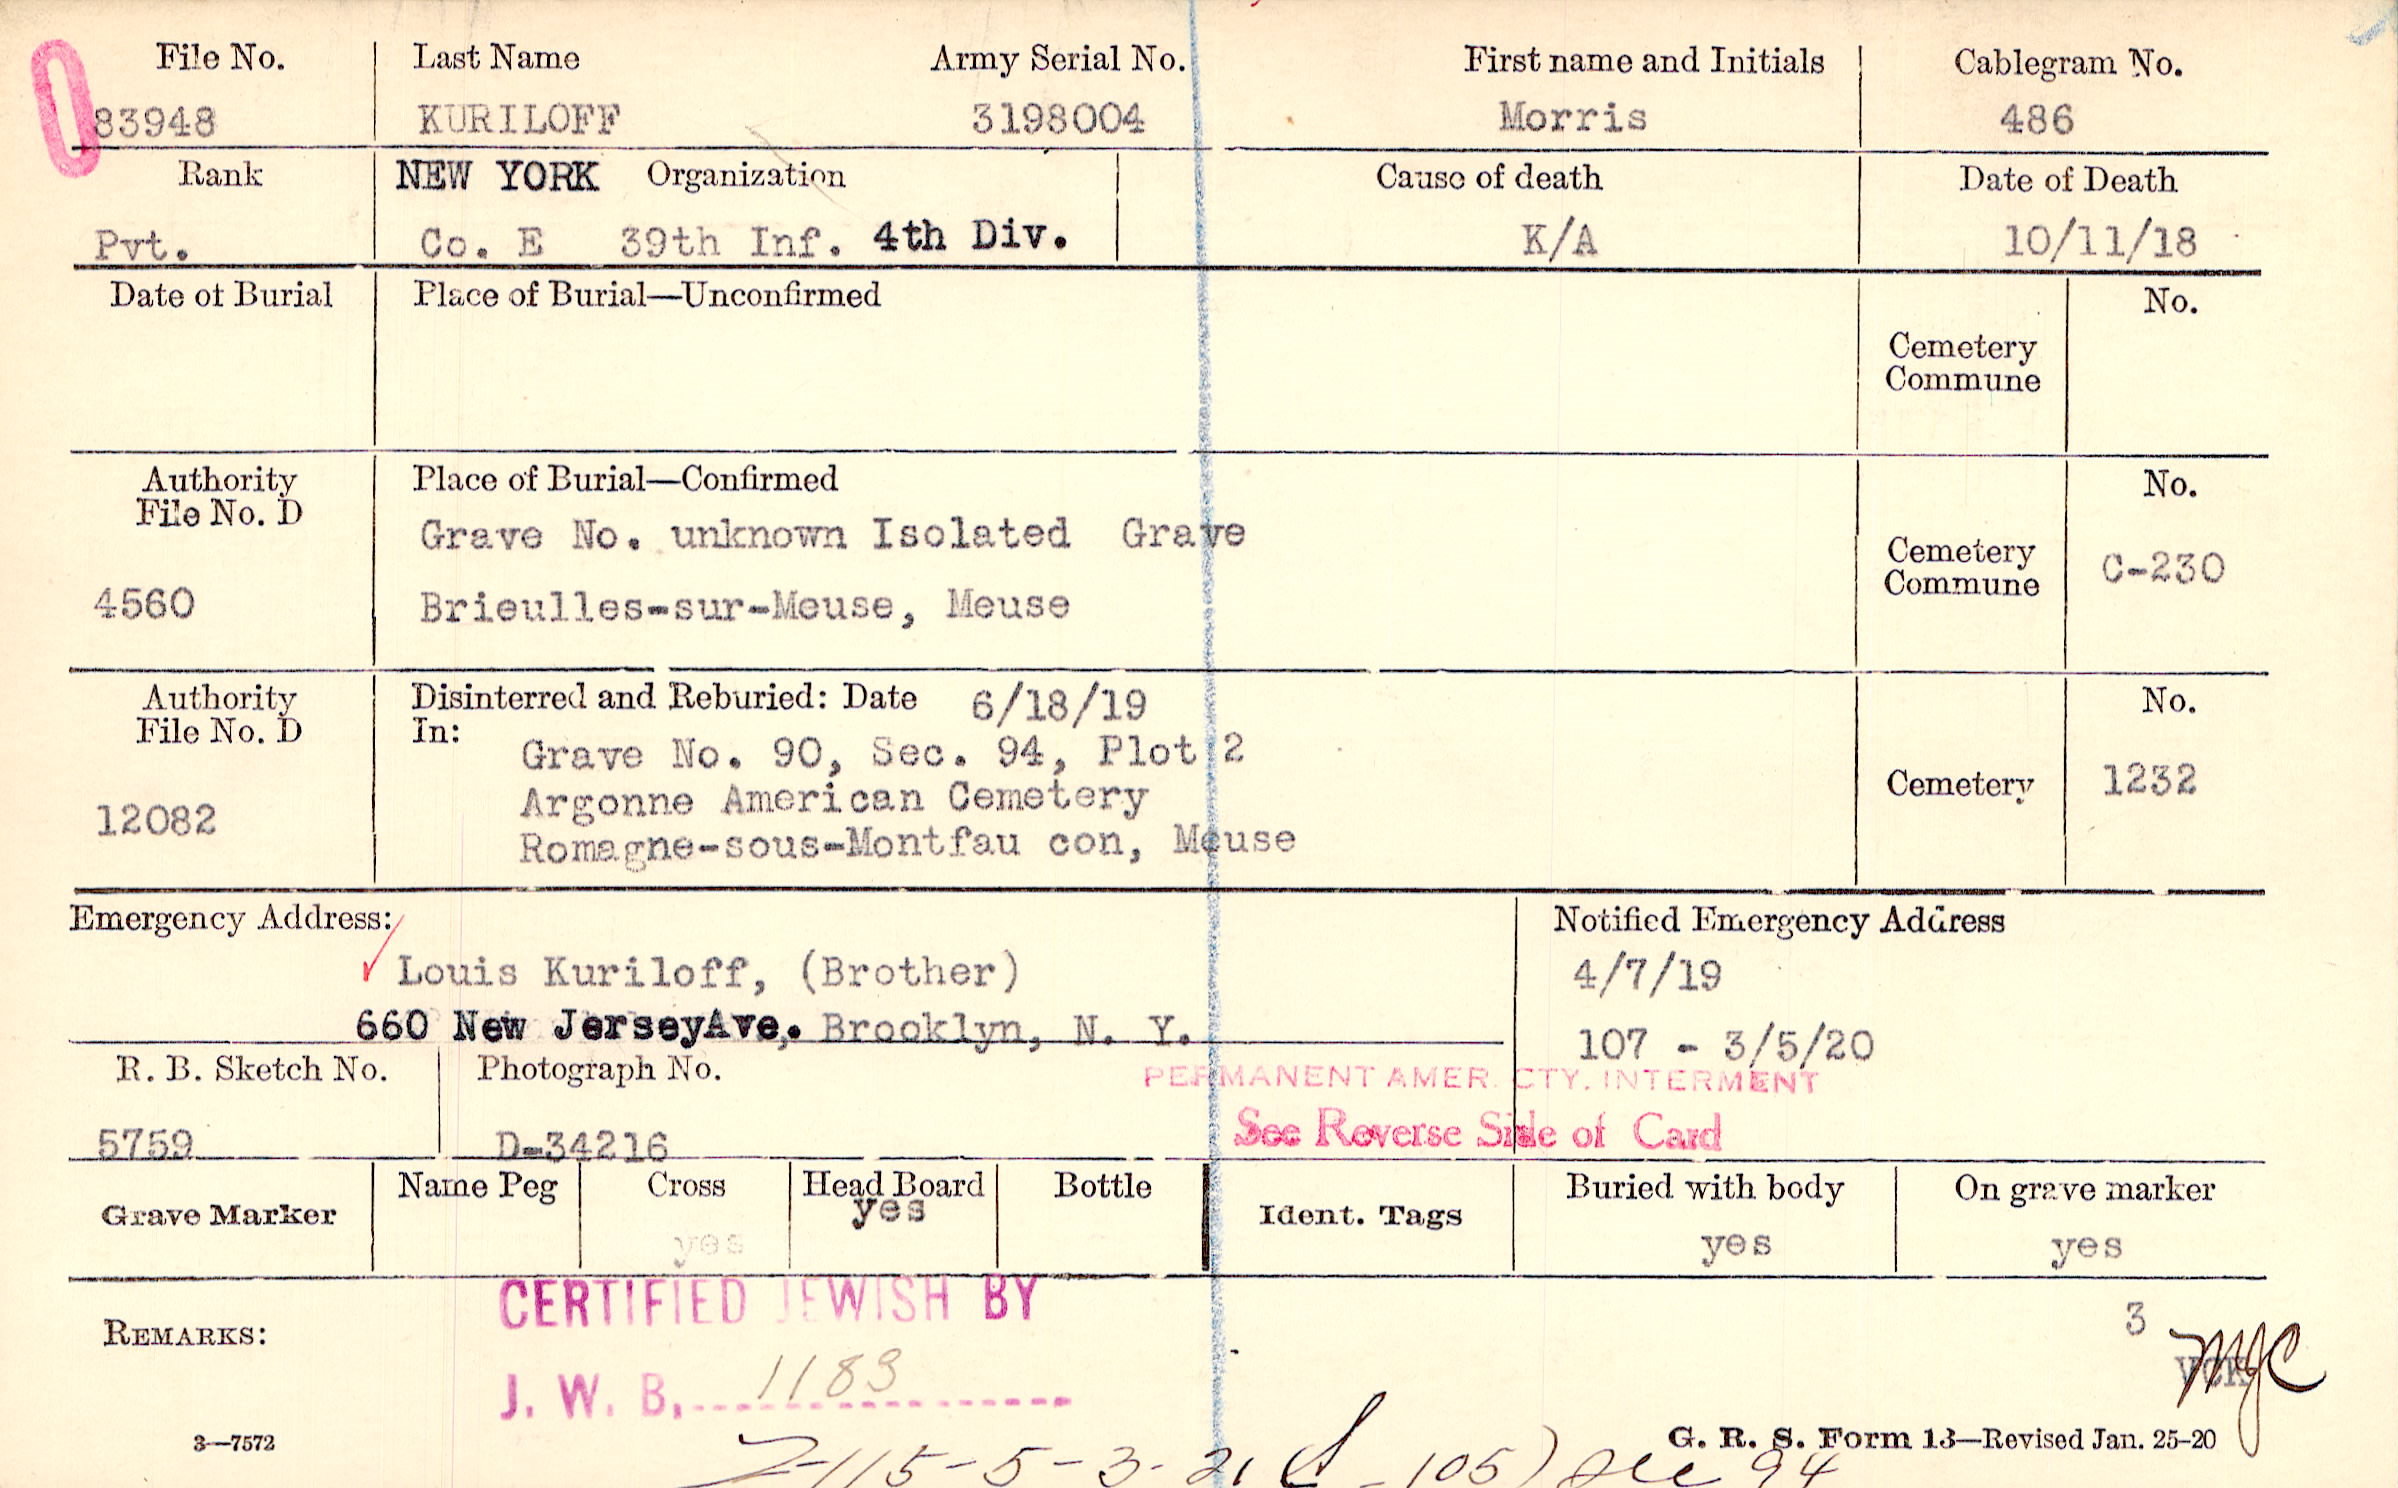 File No. Last Name Army Serial No. First name and Initials Cablegram No.
83948 KURILOFF 3198004 Morris 486
Rank NEW YORK Organization Cause of death Date of Death
Pvt. Co. E 39th Inf. 4th Div. K/A 10/11/18
Date of Burial Place of Burial—Unconfirmed No.
Cemetery
Commune
Authority Place of Burial—Confirmed No.
File No. D
Grave No. unknown Isolated Grave
Cemetery
Commune C-230
4560 Brieulles-sur-Meuse, Meuse
Authority Disinterred and Reburied: Date 6/18/19 No.
File No. D In:
Grave No. 90, Sec. 94, Plot 2
Argonne American Cemetery Cemetery 1232
12082
Romagne-sous-Montfau con, Meuse
Emergency Address: Notified Emergency Address
Louis Kuriloff, (Brother) 4/7/19
660 New JerseyAve. Brooklyn, N. Y. 107 - 3/5/20
R. B. Sketch No. Photograph No. PERMANENT AMER. CTY. INTERMENT
5759 D-34216 See Reverse Side of Card
Grave Marker Name Peg Cross Head Board Bottle Ident. Tags Buried with body On grave marker
yes yes yes yes
CERTIFIED JEWISH BY
REMARKS: 3
J. W. B. 1183 VCK MJC
3—7572 G. R. S. Form 13—Revised Jan. 25-20
115-5-3-21 ( -105) see 94